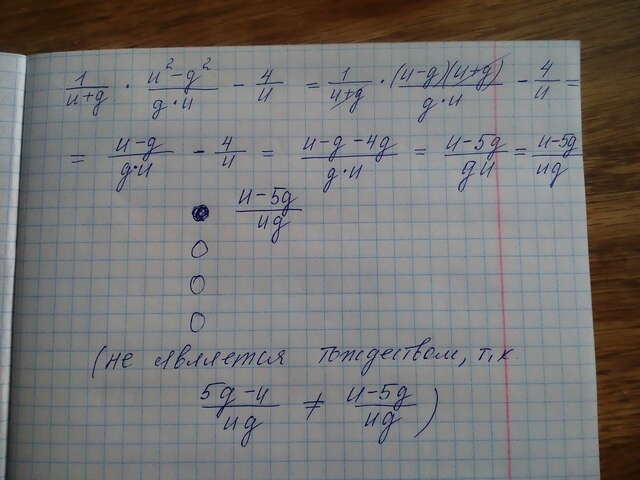 1/(u+g) · (u²-g²)/(g·u) - 4/u = 1/(u+g) · (u-g)(u+g)/(g·u) - 4/u =
= (u-g)/(g·u) - 4/u = (u-g-4g)/(g·u) = (u-5g)/(gu) = (u-5g)/(ug)
● (u-5g)/(ug)
○
○
○
(не является тождеством, т.к
(5g-u)/(ug) ≠ (u-5g)/(ug))